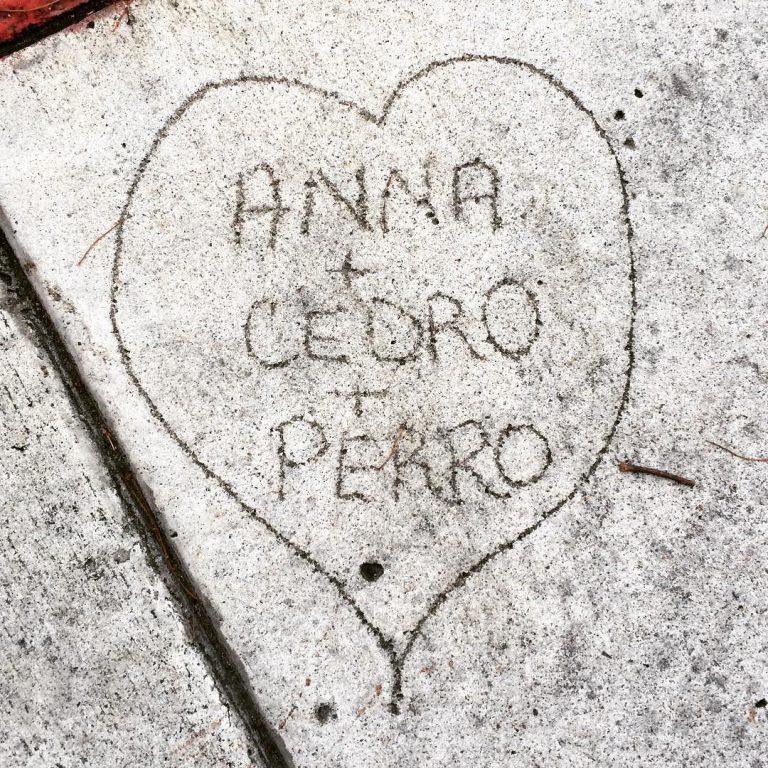 ANNA
+
CEDRO
+
PERRO